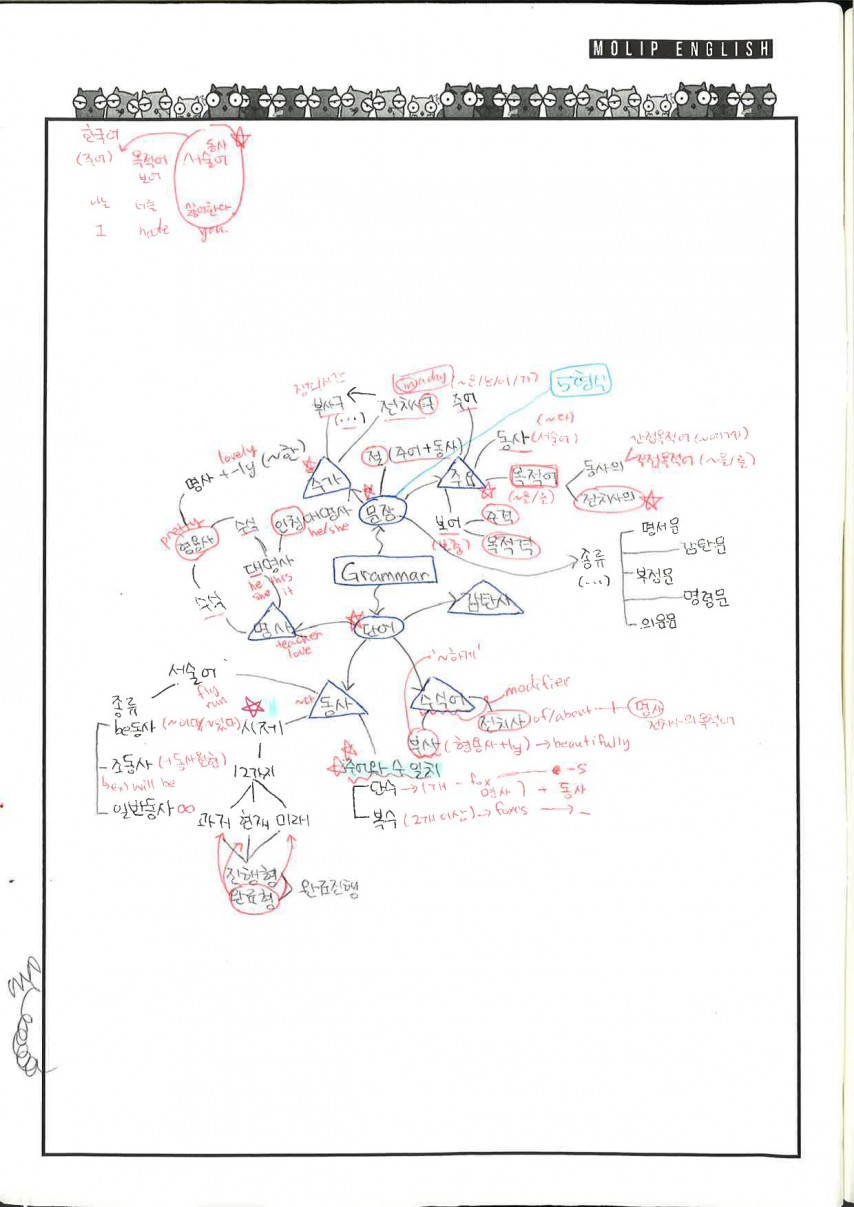 MOLIP ENGLISH
한국어
동사
(주어) 목적어 서술어
보어
나는 너를 싫어한다
I hate you.
장소시간
in a day (~은/는/이/가)
5형식
부사구 전치사구 주어
(...)
(~다)
동사 (서술어)
간접목적어 (~에게)
직접목적어 (~을/를)
동사의
전치사의
lovely
명사 + -ly (~한)
추가
절 (주어+동사)
주요
목적어
(~을/를)
pretty
형용사
수식
인칭대명사
he/she
문장
보어
(보충)
주격
목적격
대명사
he this
she it
수식
명사
teacher
love
Grammar
단어
감탄사
종류
(...)
명서문
감탄문
부정문
명령문
의문문
'~하게'
서술어
fly
run
~다
동사
수식어
modifier
전치사 of/about + 명사
전치사의 목적어
부사 (형용사+ly) → beautifully
종류
be동사
시제
조동사
ex) will be
일반동사 ∞
12가지
과거 현재 미래
진행형
완료형
완료진행
주어와 수 일치
단수 → (1개 - fox -s
명사) + 동사
복수 (2개 이상) → foxes → _